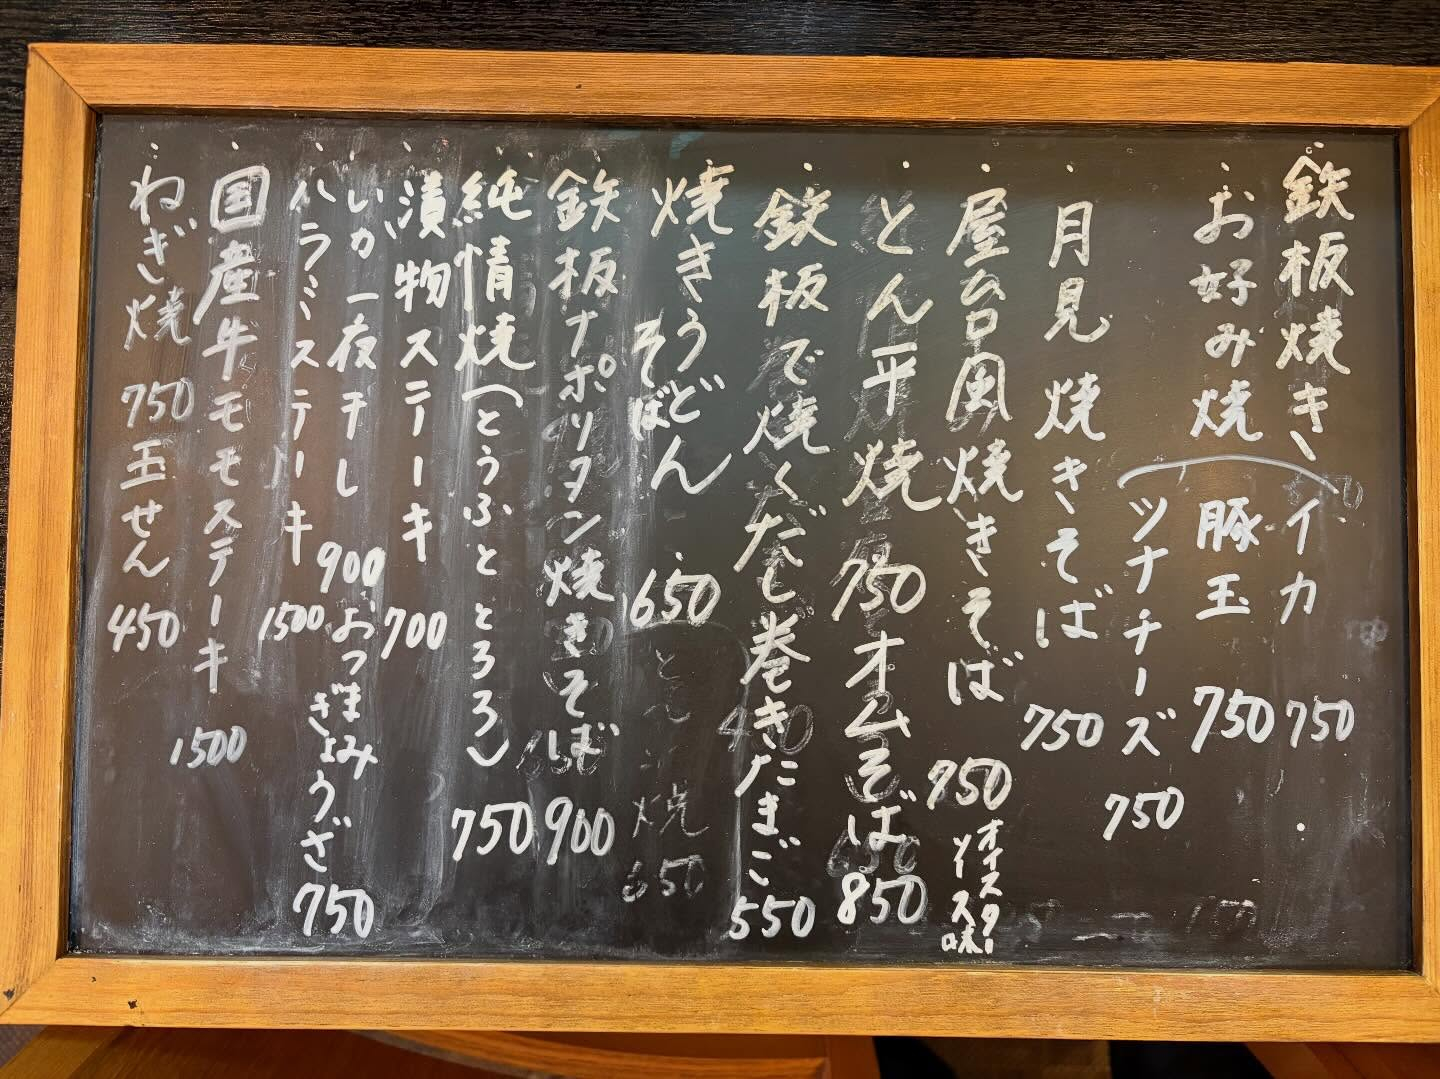 ・鉄板焼き、イカ 750
・お好み焼 豚玉 750
ツナチーズ 750
・月見焼きそば 750
・屋台風焼きそば 750 オイスターソース味
・とん平焼 750 オムそば 850
・鉄板で焼くだし巻きたまご 550
・焼きうどん・650
そばん
・鉄板ナポリタン焼きそば 900
・純情焼(とうふととろろ) 750
・漬物ステーキ 700
・いか一夜干し 900 おつまみぎょうざ 750
・ハラミステーキ 1500
・国産牛モモステーキ 1500
・ねぎ焼 750 玉せん 450
とん平焼 650